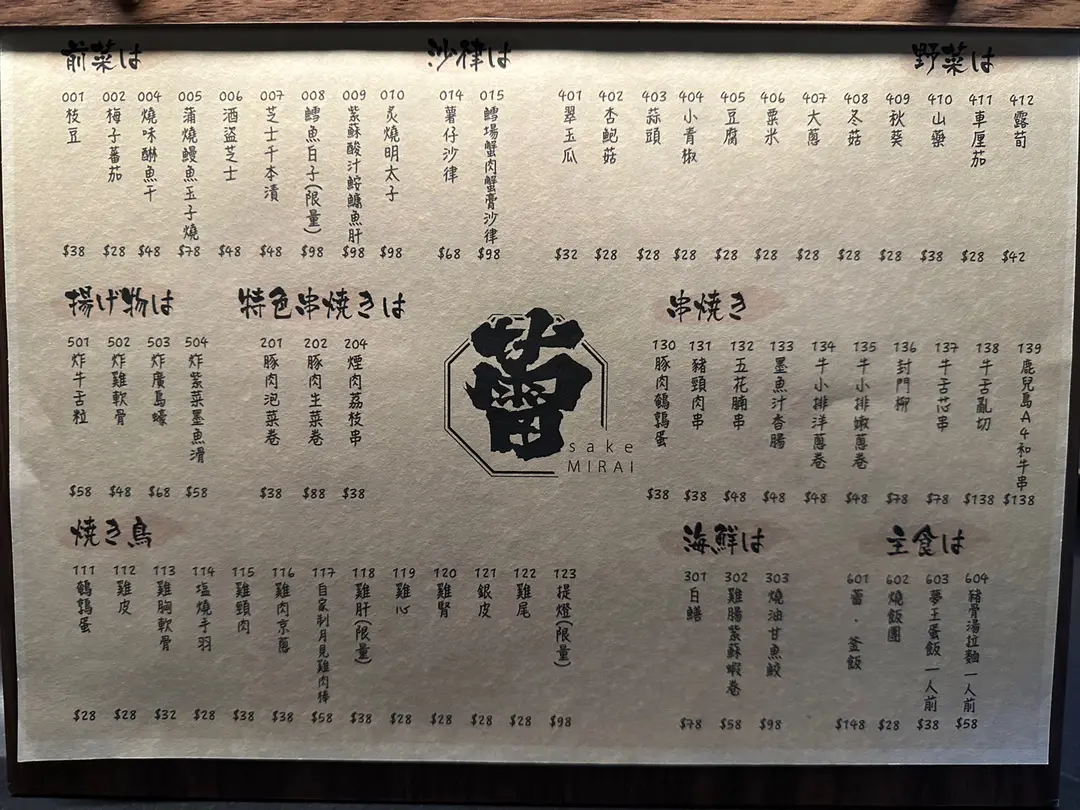 前菜は
001 枝豆 $38
002 梅子蕃茄 $28
004 燒味醂魚干 $48
005 蒲燒鰻魚玉子燒 $78
006 酒盜芝士 $48
007 芝士千本漬 $48
008 鱈魚白子(限量) $98
009 紫蘇酸汁鮟鱇魚肝 $98
010 炙燒明太子 $98
沙律は
014 薯仔沙律 $68
015 鱈場蟹肉蟹膏沙律 $98
野菜は
401 翠玉瓜 $32
402 杏鮑菇 $28
403 蒜頭 $28
404 小青椒 $28
405 豆腐 $28
406 粟米 $28
407 大蔥 $28
408 冬菇 $28
409 秋葵 $28
410 山藥 $38
411 車厘茄 $28
412 露荀 $42
揚げ物は
501 炸牛舌粒 $58
502 炸雞軟骨 $48
503 炸廣島蠔 $68
504 炸紫菜墨魚滑 $58
特色串焼きは
201 豚肉泡菜卷 $38
202 豚肉生菜卷 $88
204 煙肉荔枝串 $38
sake
MIRAI
串焼き
130 豚肉鵪鶉蛋 $38
131 豬頸肉串 $38
132 五花腩串 $48
133 墨魚汁香腸 $48
134 牛小排洋蔥卷 $48
135 牛小排嫩蔥卷 $48
136 封門柳 $78
137 牛舌芯串 $78
138 牛舌亂切 $138
139 鹿兒島A4和牛串 $138
焼き鳥
111 鵪鶉蛋 $28
112 雞皮 $28
113 雞胸軟骨 $32
114 塩燒手羽 $28
115 雞頸肉 $38
116 雞肉京蔥 $38
117 自家制月見雞肉棒 $58
118 雞肝(限量) $38
119 雞心 $28
120 雞腎 $28
121 銀皮 $28
122 雞尾 $28
123 提燈(限量) $98
海鮮は
301 白鱔 $78
302 雞腸紫蘇蝦卷 $58
303 燒油甘魚鮫 $98
主食は
601 蕾·釜飯 $148
602 燒飯團 $28
603 夢王蛋飯一人前 $38
604 豬骨湯拉麵一人前 $58